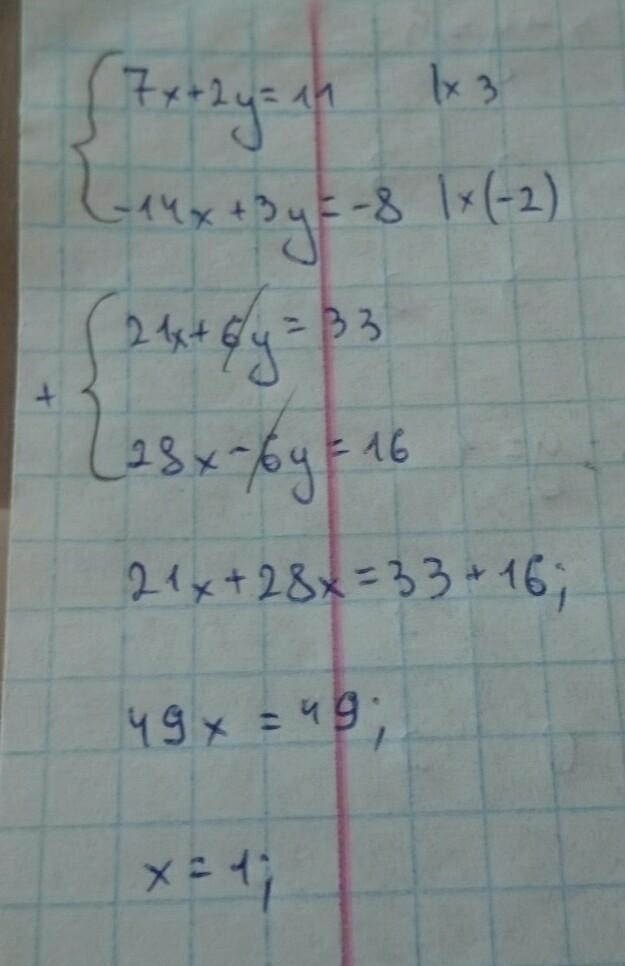 7x+2y=11 |x 3
-14x+3y=-8 |x(-2)
21x+6y=33
+
28x-6y=16
21x+28x=33+16;
49x=49;
x=1;